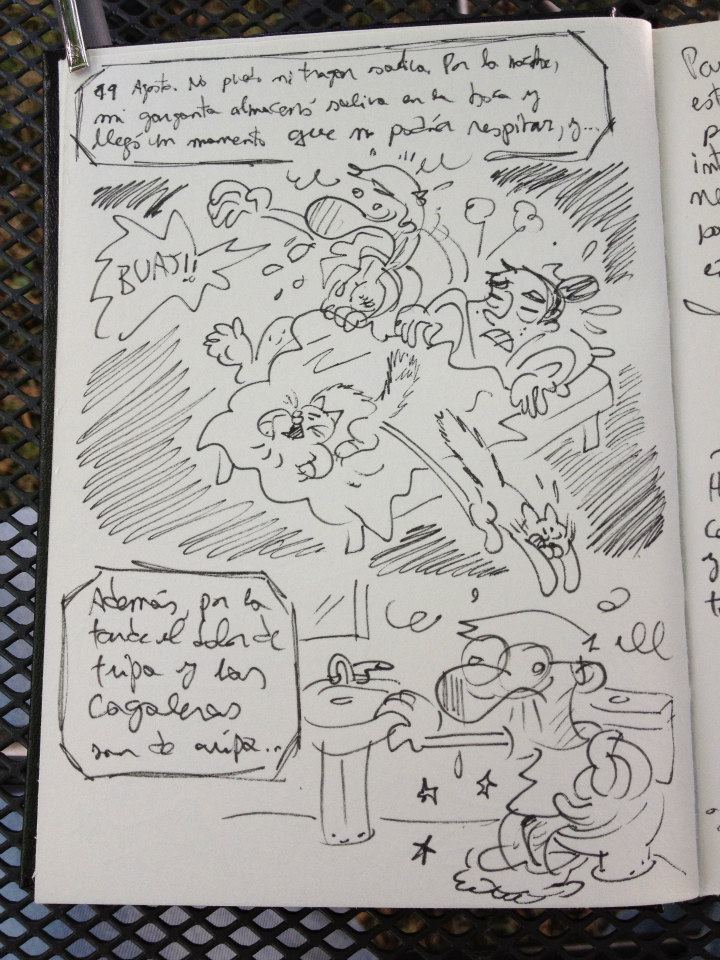 19 Agosto. No puedo ni tragar saliva. Por la noche,
mi garganta almacenó saliva en la boca y
llegó un momento que no podía respirar, y...
BUAJ!!
Además, por la
tarde el dolor de
tripa y las
cagaleras
son de aupa...